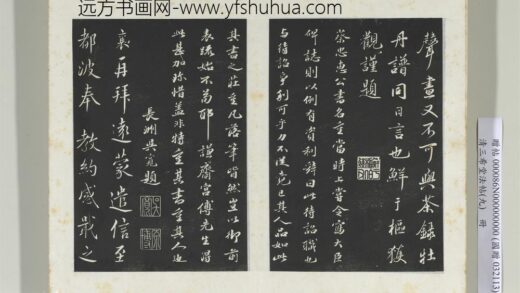 远方书画网-www.yfshuhua.com
聲畫又不可與茶録牡
丹譜同日言也鮮于樞獲
觀謹題
蔡忠惠公書名重當時上嘗令寫大臣
碑誌則以例有資利辭曰此待詔職也
与待詔争利可乎力不従竟已其人品如此
其書之莊重凡落筆皆然豈以御前
表疏始不苟耶 謹齋宫傅先生得
此甚加珍惜蓋非特重其書重其人也
長洲吳寬題
襄再拜遠蒙遣信至
都波奉 教約感戢之
贈帖 000086N000000000
清三希堂法帖(九) 冊